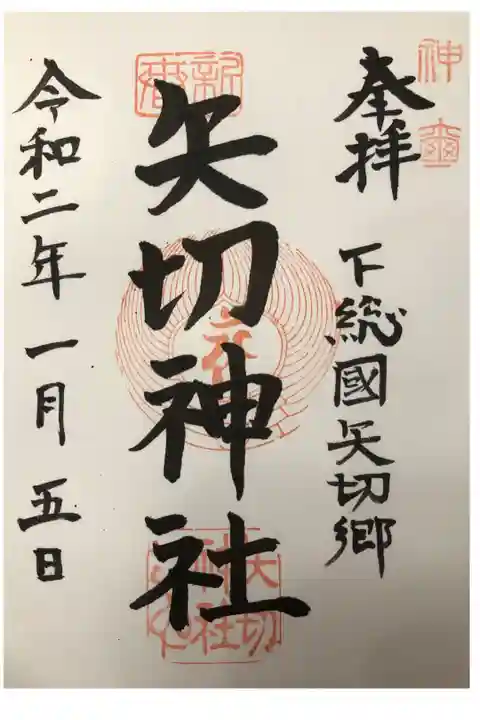 神璽
奉拝
下総國矢切郷
矢切神社
令和二年一月五日